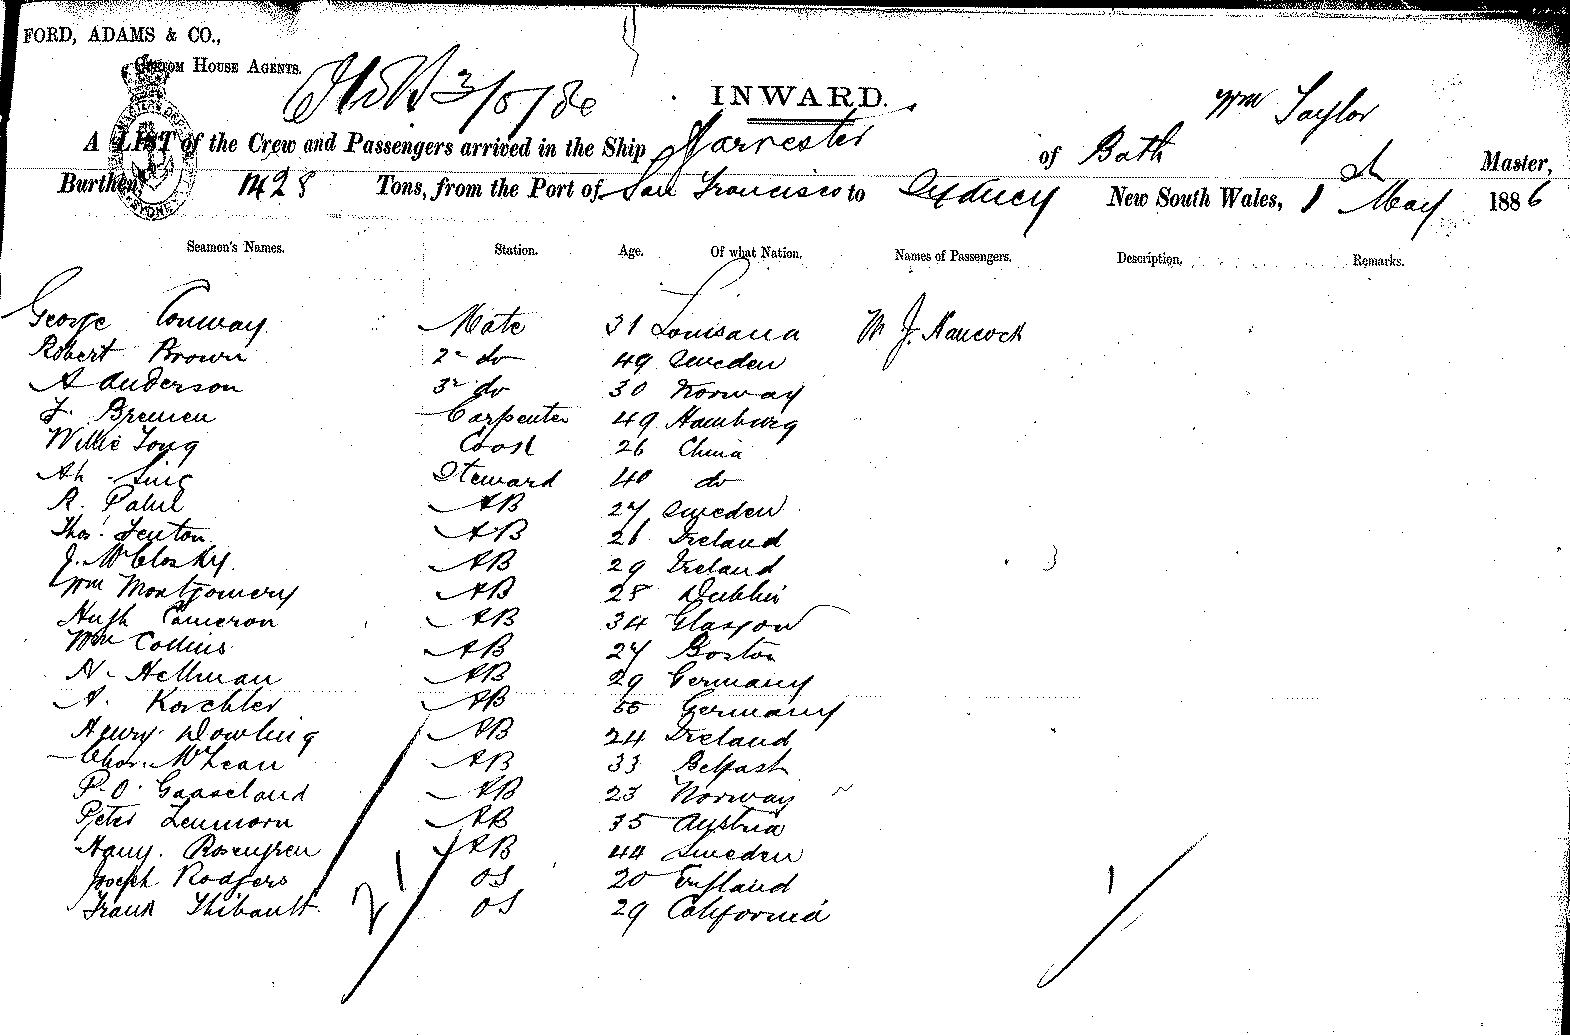 FORD, ADAMS & CO.,
CUSTOM HOUSE AGENTS.
3/5/86
INWARD.
Wm Taylor
A LIST of the Crew and Passengers arrived in the Ship Harvester of Bath Master,
Burthen 1428 Tons, from the Port of San Francisco to Sydney New South Wales, 1st May 1886
Seamen's Names. Station. Age. Of what Nation. Names of Passengers. Description. Remarks.
George Conway Mate 31 Louisana W. J. Hancock
Robert Brown 2 do 49 Sweden
A Anderson 3 do 30 Norway
F. Bremen Carpenter 49 Hamburg
Willie Tong Cook 26 China
Ah Sing Steward 40 do
R. Pahil AB 27 Sweden
Thos. Fenton AB 26 Ireland
J. McClosky. AB 29 Ireland
Wm Montgomery AB 28 Dublin
Hugh Cameron AB 34 Glasgow
Wm Collins AB 27 Boston
N. Hellman AB 29 Germany
A. Korchler AB 55 Germany
Henry Dowling AB 24 Ireland
Chas. McLean AB 33 Belfast
P. O. Gaaseland AB 23 Norway
Peter Lenmorn AB 35 Austria
Harry. Rosengren AB 44 Sweden
Joseph Rodgers OS 20 England
Frank Thibault OS 29 California
21 1